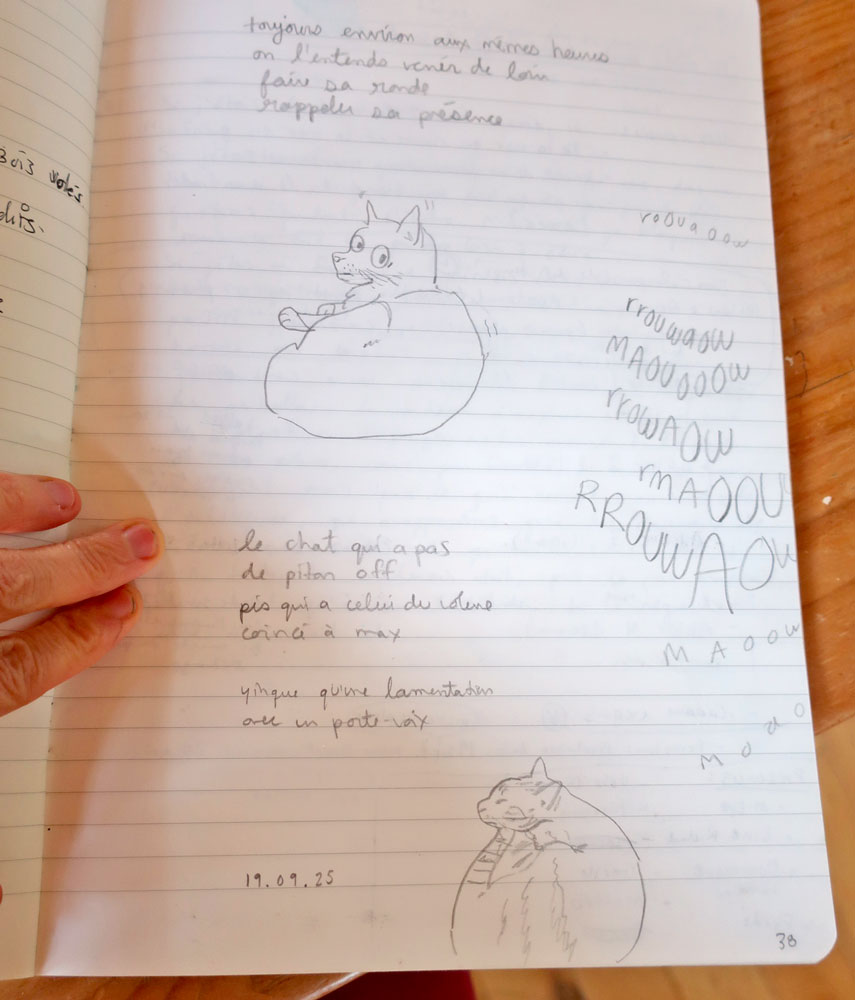 toujours environ aux mêmes heures
on l'entends venir de loin
faire sa ronde
rappeler sa présence
Bois volés
roouaoow
rrouwaow
MAOUOOOW
rrowAOW
rMAOOU
RROUWAOW
le chat qui a pas
de piton off
pis qui a celui du volume
coincé à max
MAOOW
yinque qu'une lamentation
avec un porte-voix
Moao
19.09.25
38